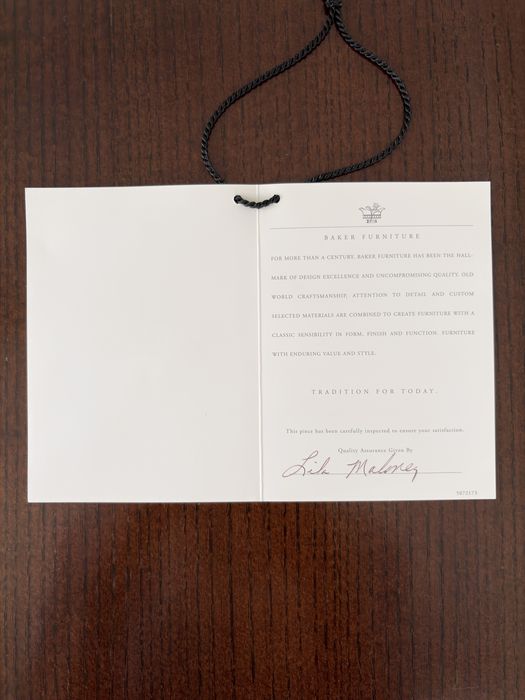 BAKER FURNITURE
FOR MORE THAN A CENTURY, BAKER FURNITURE HAS BEEN THE HALL-
MARK OF DESIGN EXCELLENCE AND UNCOMPROMISING QUALITY. OLD
WORLD CRAFTSMANSHIP, ATTENTION TO DETAIL AND CUSTOM
SELECTED MATERIALS ARE COMBINED TO CREATE FURNITURE WITH A
CLASSIC SENSIBILITY IN FORM, FINISH AND FUNCTION. FURNITURE
WITH ENDURING VALUE AND STYLE.
TRADITION FOR TODAY.
This piece has been carefully inspected to ensure your satisfaction.
Quality Assurance Given By
Lila Maloney